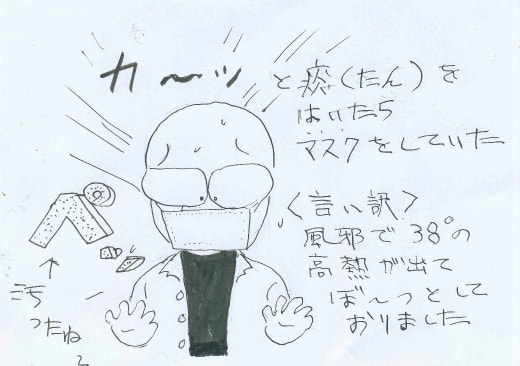 カ〜〜ッ と痰(たん)を
はいたら
マスクをしていた
〈言い訳〉
風邪で38°の
高熱が出て
ぼ〜っとして
おりました
↑
ったね